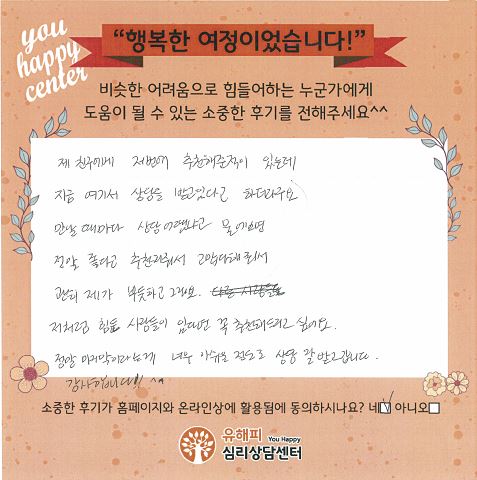 you
happy
center
“행복한 여정이었습니다!”
비슷한 어려움으로 힘들어하는 누군가에게
도움이 될 수 있는 소중한 후기를 전해주세요^^
제 친구에게 저번에 추천해준적이 있는데
지금 여기서 상담을 받고있다고 하더라구요
만날 때마다 상담 어땠냐고 물어보면
정말 좋다고 추천해줘서 고맙다해줘서
괜히 제가 뿌듯하고 그래요.
저처럼 힘든 사람들이 있다면 꼭 추천해드리고 싶어요.
정말 마지막이라는게 너무 아쉬울 정도로 상담 잘 받고갑니다.
감사합니다!! ^^
소중한 후기가 홈페이지와 온라인상에 활용됨에 동의하시나요? 네☑ 아니오☐
유해피 You Happy
심리상담센터